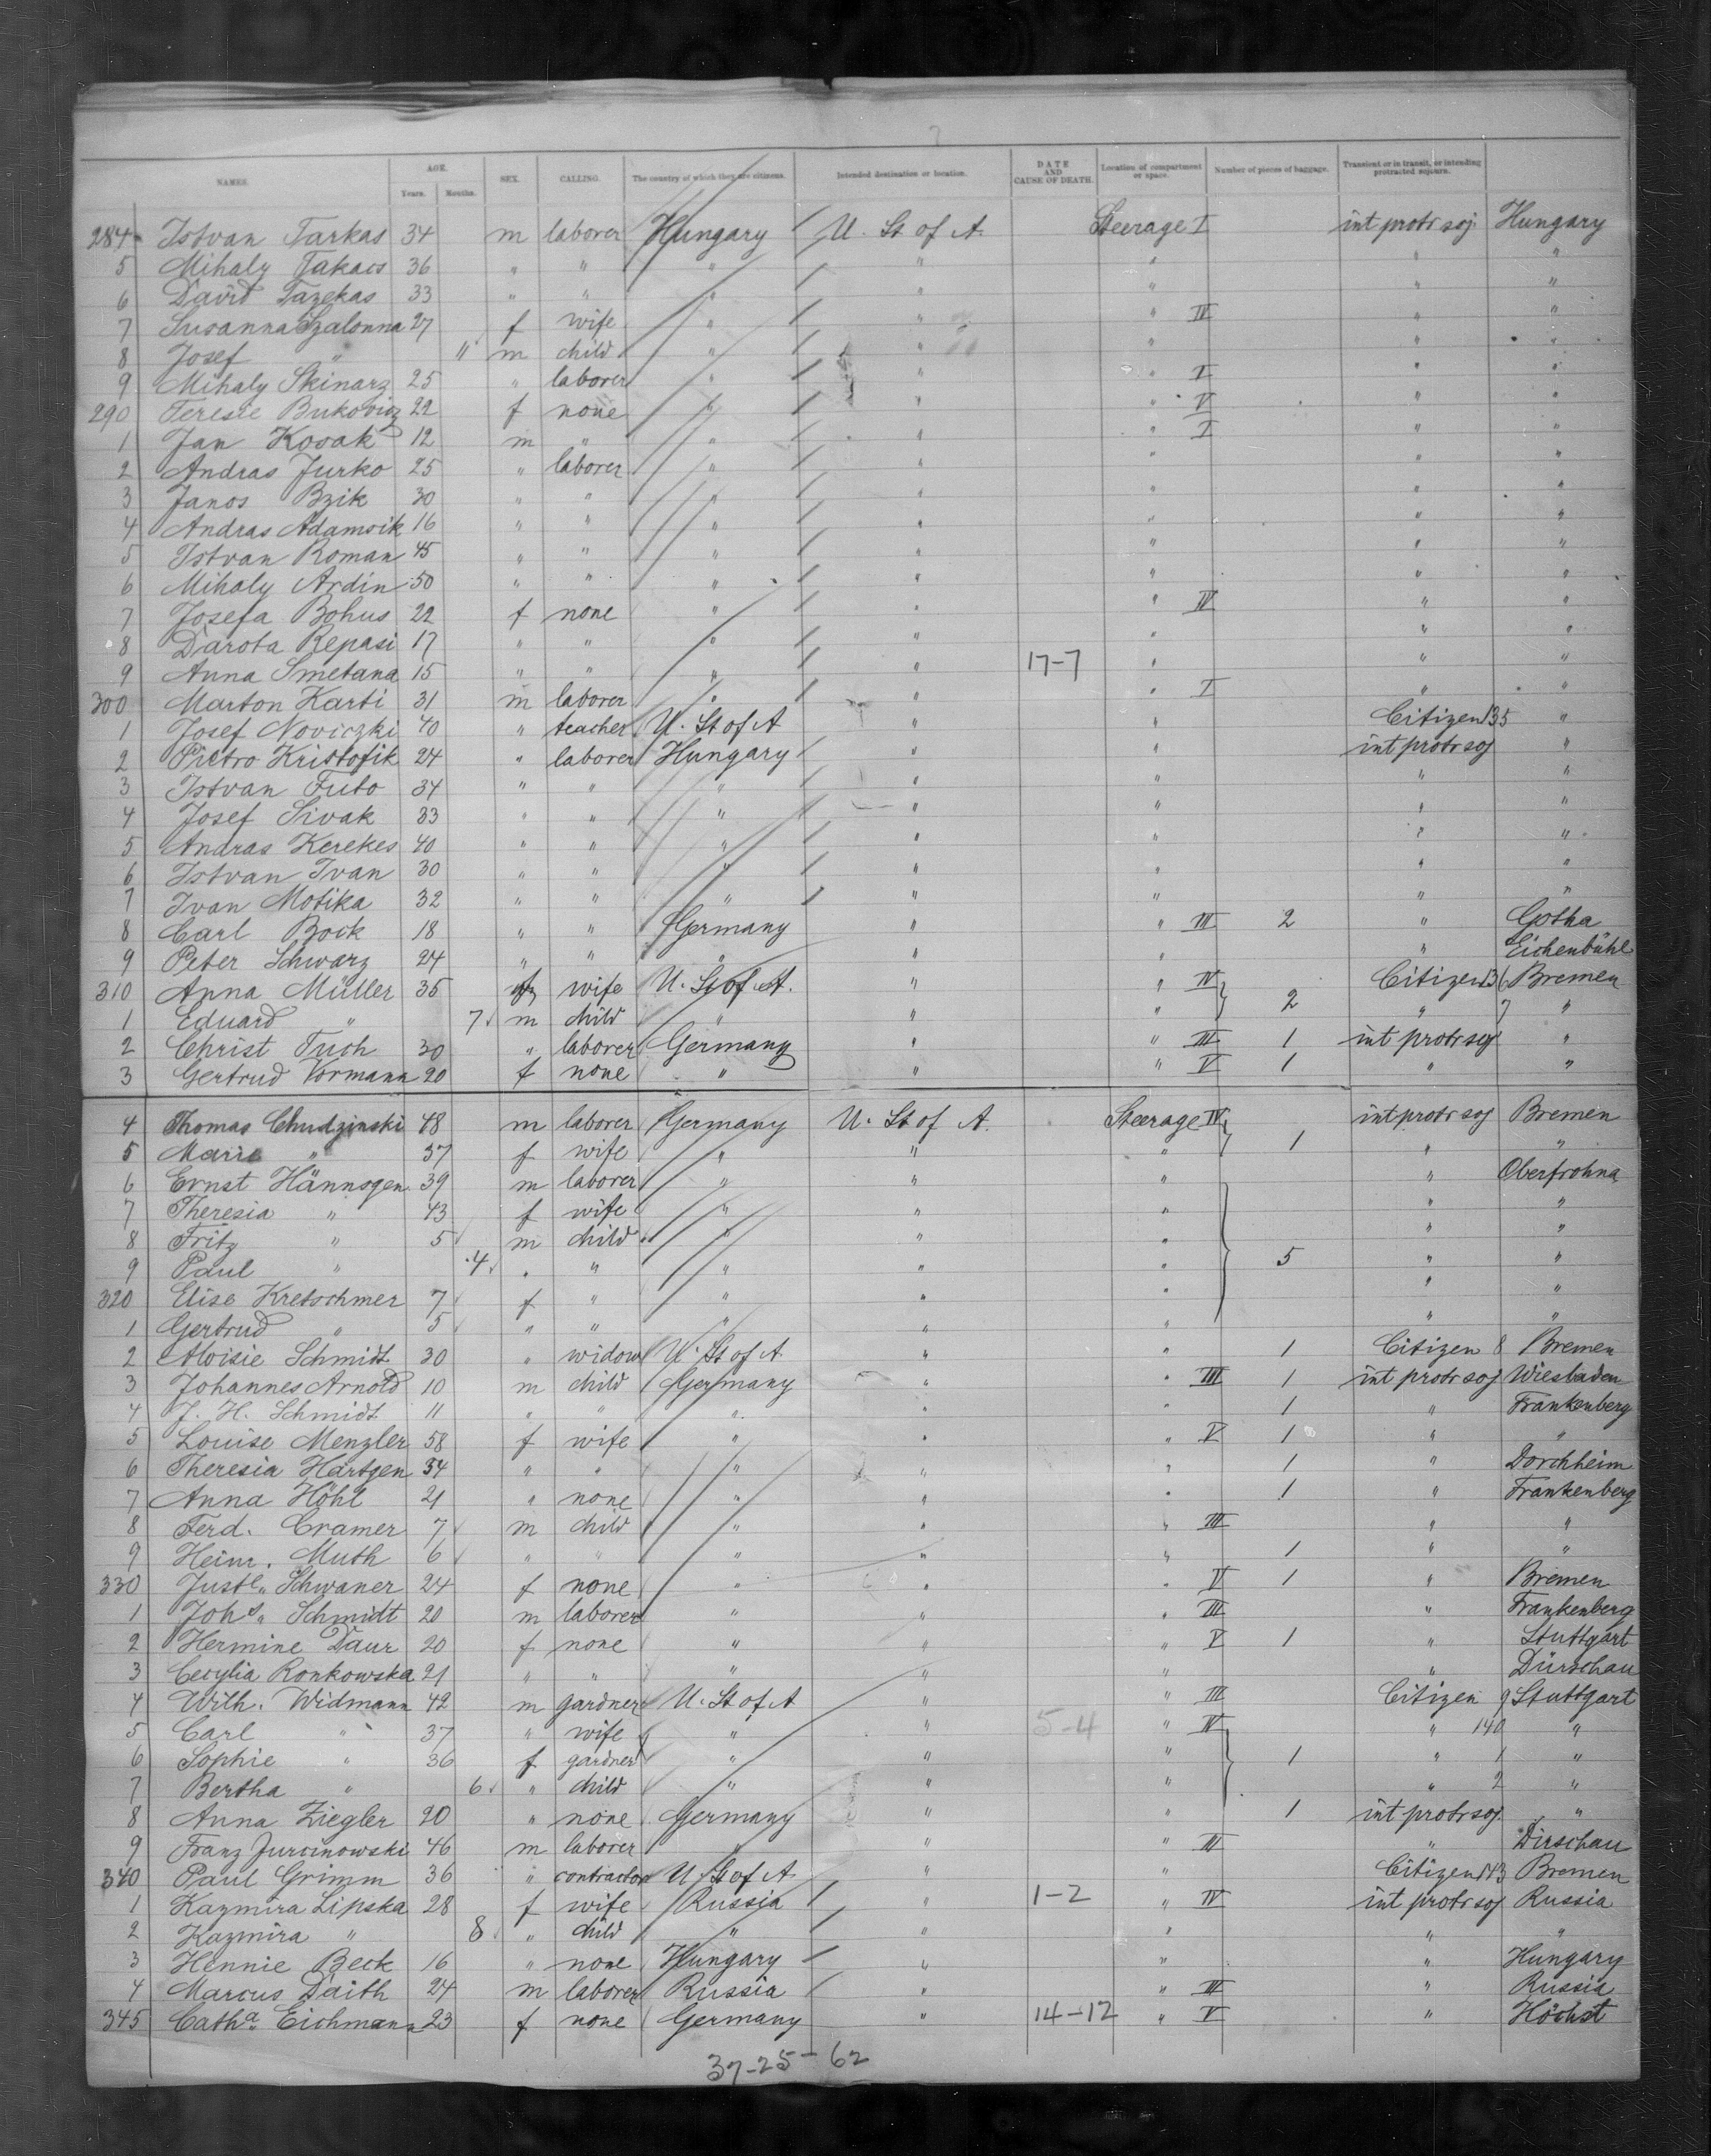 NAMES. AGE. Years. Months. SEX. CALLING. The country of which they are citizens. Intended destination or location. DATE AND CAUSE OF DEATH. Location of compartment or space. Number of pieces of baggage. Transient or in transit, or intending protracted sojourn.
284 Istvan Farkas 34 m laborer Hungary U. St of A. Steerage I int protr soj. Hungary
5 Mihaly Takacs 36 " " " " " " "
6 David Fazekas 33 " " " " " " "
7 Susanna Szalonna 27 f wife " " " IV " "
8 Josef " 11 m child " " " " "
9 Mihaly Skinarz 25 " laborer " " " I " "
290 Teresie Bukovicz 22 f none " " " V " "
1 Jan Kovak 12 m " " " " I " "
2 Andras Jurko 25 " laborer " " " " "
3 Janos Bzik 30 " " " " " " "
4 Andras Adamcik 16 " " " " " " "
5 Istvan Roman 45 " " " " " " "
6 Mihaly Ardin 50 " " " " " " "
7 Josefa Bohus 22 f none " " " IV " "
8 Darota Repasi 17 " " " " " " "
9 Anna Smetana 15 " " " " 17-7 " " "
300 Marton Karti 31 m laborer " " " I " "
1 Josef Noviczki 40 " teacher U. St of A " " Citizen 135 "
2 Pietro Kristofik 24 " laborer Hungary " " int protr soj "
3 Istvan Futo 34 " " " " " " "
4 Josef Sivak 33 " " " " " " "
5 Andras Kerekes 40 " " " " " " "
6 Istvan Ivan 30 " " " " " " "
7 Ivan Motika 32 " " " " " " "
8 Carl Bock 18 " " Germany " " III 2 " Gotha
9 Peter Schwarz 24 " " " " " " Eichenbühl
310 Anna Müller 35 f wife U. St of A. " " IV 2 Citizen 136 Bremen
1 Eduard " 7 m child " " " " 7 "
2 Christ Tuch 30 " laborer Germany " " III 1 int protr soj "
3 Gertrud Vormann 20 f none " " " V 1 " "
4 Thomas Chudzinski 48 m laborer Germany U. St of A. Steerage IV 1 int protr soj Bremen
5 Marie " 37 f wife " " " " "
6 Ernst Hännsgen 39 m laborer " " " " Oberfrohna
7 Theresia " 43 f wife " " " " "
8 Fritz " 5 m child " " " " "
9 Paul " 4 " " " " " 5 " "
320 Elise Kretschmer 7 f " " " " " "
1 Gertrud " 5 " " " " " " "
2 Aloisie Schmidt 30 " widow U. St of A. " " 1 Citizen 8 Bremen
3 Johannes Arnold 10 m child Germany " " III 1 int protr soj Wiesbaden
4 J. H. Schmidt 11 " " " " " 1 " Frankenberg
5 Louise Menzler 58 f wife " " " V 1 " "
6 Theresia Hartgen 34 " " " " " 1 " Dorchheim
7 Anna Höhl 21 " none " " " 1 " Frankenberg
8 Ferd. Cramer 7 m child " " " III " "
9 Heinr. Muth 6 " " " " " 1 " "
330 Justl. Schwaner 24 f none " " " V 1 " Bremen
1 Johs. Schmidt 20 m laborer " " " III " Frankenberg
2 Hermine Daur 20 f none " " " V 1 " Stuttgart
3 Cecylia Ronkowska 21 " " " " " " Dürschau
4 Wilh. Widmann 42 m gardner U. St of A " " III Citizen 9 Stuttgart
5 Carl " 37 " wife " " 5-4 " IV " 140 "
6 Sophie " 36 f gardner " " " 1 " 1 "
7 Bertha " 6 " child " " " " 2 "
8 Anna Ziegler 20 " none Germany " " 1 int protr soj. "
9 Franz Jurcinowski 46 m laborer " " " III " Dirschau
340 Paul Grimm 36 " contractor U. St of A " " Citizen 143 Bremen
1 Kazmira Lipska 28 f wife Russia " 1-2 " IV int protr soj Russia
2 Kazmira " 8 " child " " " " "
3 Hennie Beck 16 " none Hungary " " " Hungary
4 Marcus Daith 24 m laborer Russia " " III " Russia
345 Catha. Eichmann 23 f none Germany " 14-12 " V " Höchst
37-25-62